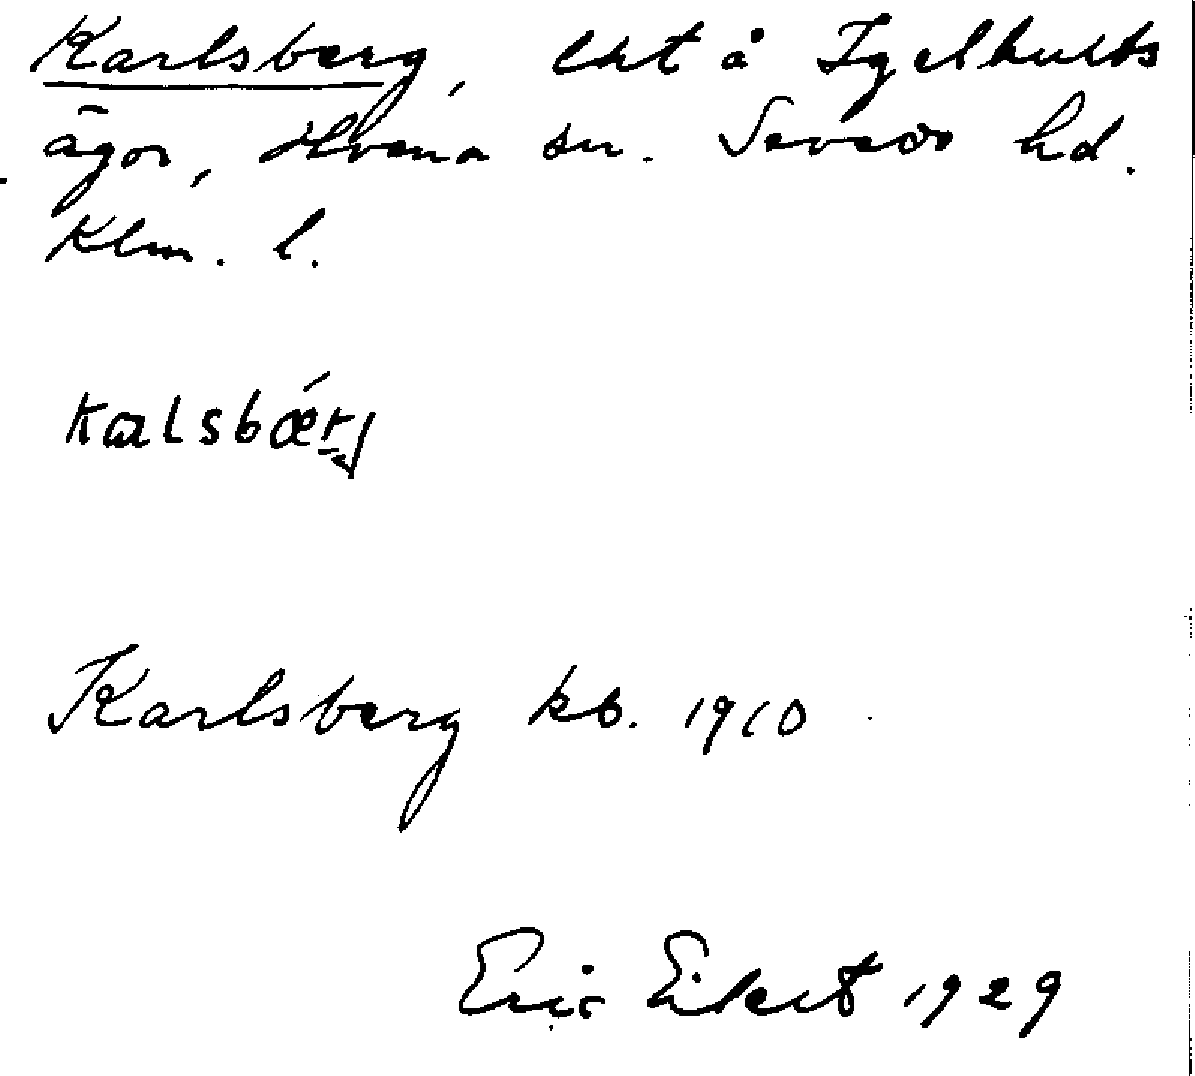 Karlsberg, lht å Igelhults
ägor, Hvena sn. Sevede hd.
Klm. l.
Kalsbǽrj
Karlsberg kb. 1910
Eric Eilert 1929